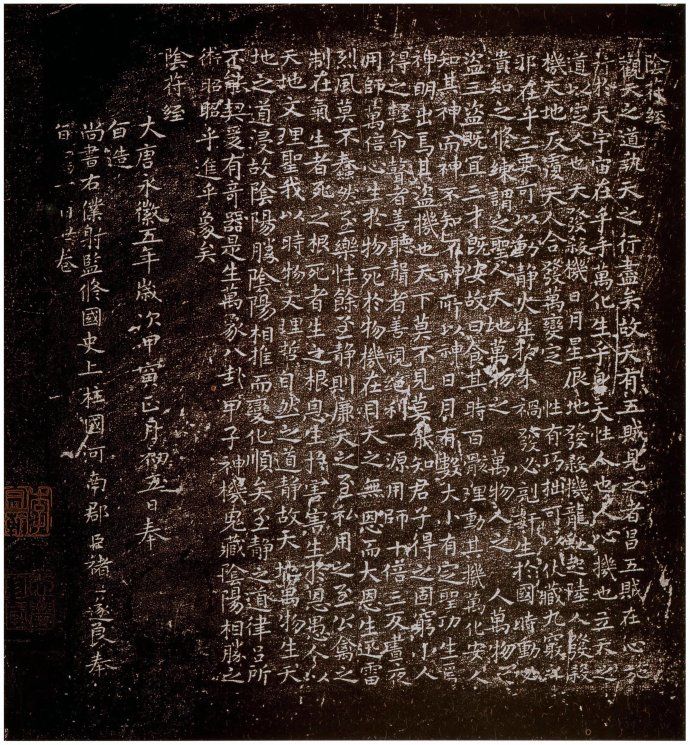 陰符經
觀天之道執天之行盡矣故天有五賊見之者昌五賊在心施
行於天宇宙在乎手萬化生乎身天性人也人心機也立天之
道以定人也天發殺機日月星辰地發殺機龍蛇起陸人發殺
機天地反覆天人合發萬變之 性有巧拙可以伏藏九竅之
邪在乎三要可以動靜火生於木禍發必剋姧生於國時動必
貴知之修練謂之聖人天地萬物之 萬物人之 人萬物之
盜三盜既冝三才既安故曰食其時百骸理動其機萬化安人
知其神而神不知不神所以神日月有數大小有定聖功生焉
神明出焉其盜機也天下莫不見莫能知君子得之固窮小人
得之輕命瞽者善聽聾者善視絕利一源用師十倍三反晝夜
用師萬倍心生於物死於物機在目天之無恩而大恩生迅雷
烈風莫不蠢然至樂性餘至靜則廉天之至私用之至公禽之
制在氣生者死之根死者生之根恩生於害害生於恩愚人以
天地文理聖我以時物文理哲自然之道靜故天地萬物生天
地之道浸故陰陽勝陰陽相推而變化順矣至靜之道律呂所
不能契爰有奇器是生萬象八卦甲子神機鬼藏陰陽相勝之
術昭昭乎進乎象矣
陰符經
大唐永徽五年歲次甲寅正月初五日奉
旨造
尚書右僕射監修國史上柱國河南郡臣褚遂良奉
旨 一 卷